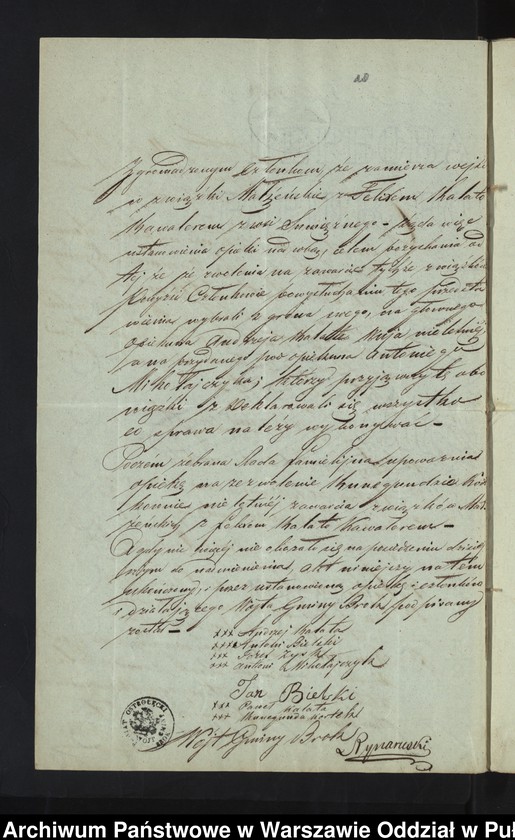 20
Zgromadzonym Członkom że zamierza wejść
w związki Małżeńskie z Felixem Kałata
Kawalerem z wsi żąda więc
ustanowienia opieki nad sobą, celem pozyskania od
tej że zezwolenia na zawarcie tychże związków
Członkowie powysłuchaniu tego przedsta
wienia wybrali z grona swego, na głównego
opiekuna Andrzeja Kałatę Wuja nieletniej
a na przydanego pod opiekuna Antoniego
Mikołajczyka, którzy przyjąwszy te obo
wiązki zdeklarowali się wszystko
co sprawa należy wykonywać –
Poczém zebrana Rada familijna upoważnia
opiekę na zezwolenie Kunegundzie
nieletniéj zawarcia związków Mał
żeńskich z Felixem Kałatą Kawalerem –
A gdy nic więcéj nie okazało się na posiedzeniu dzisiéj
szym do nadmienienia, akt niniejszy na tém
ukończony, i przez ustanowioną opiekę i członków
i działającego Wójta Gminy Brok podpisany
został –
xxx Andrzej Kałata
xxx Antoni Bielski
xxx Józef Zysk
xxx Antoni Mikołajczyk
Jan Bielski
xxx Paweł Kałata
xxx Kunegunda
Wójt Gminy Brok
Archiwum Państwowe w Warszawie Oddział w Puł